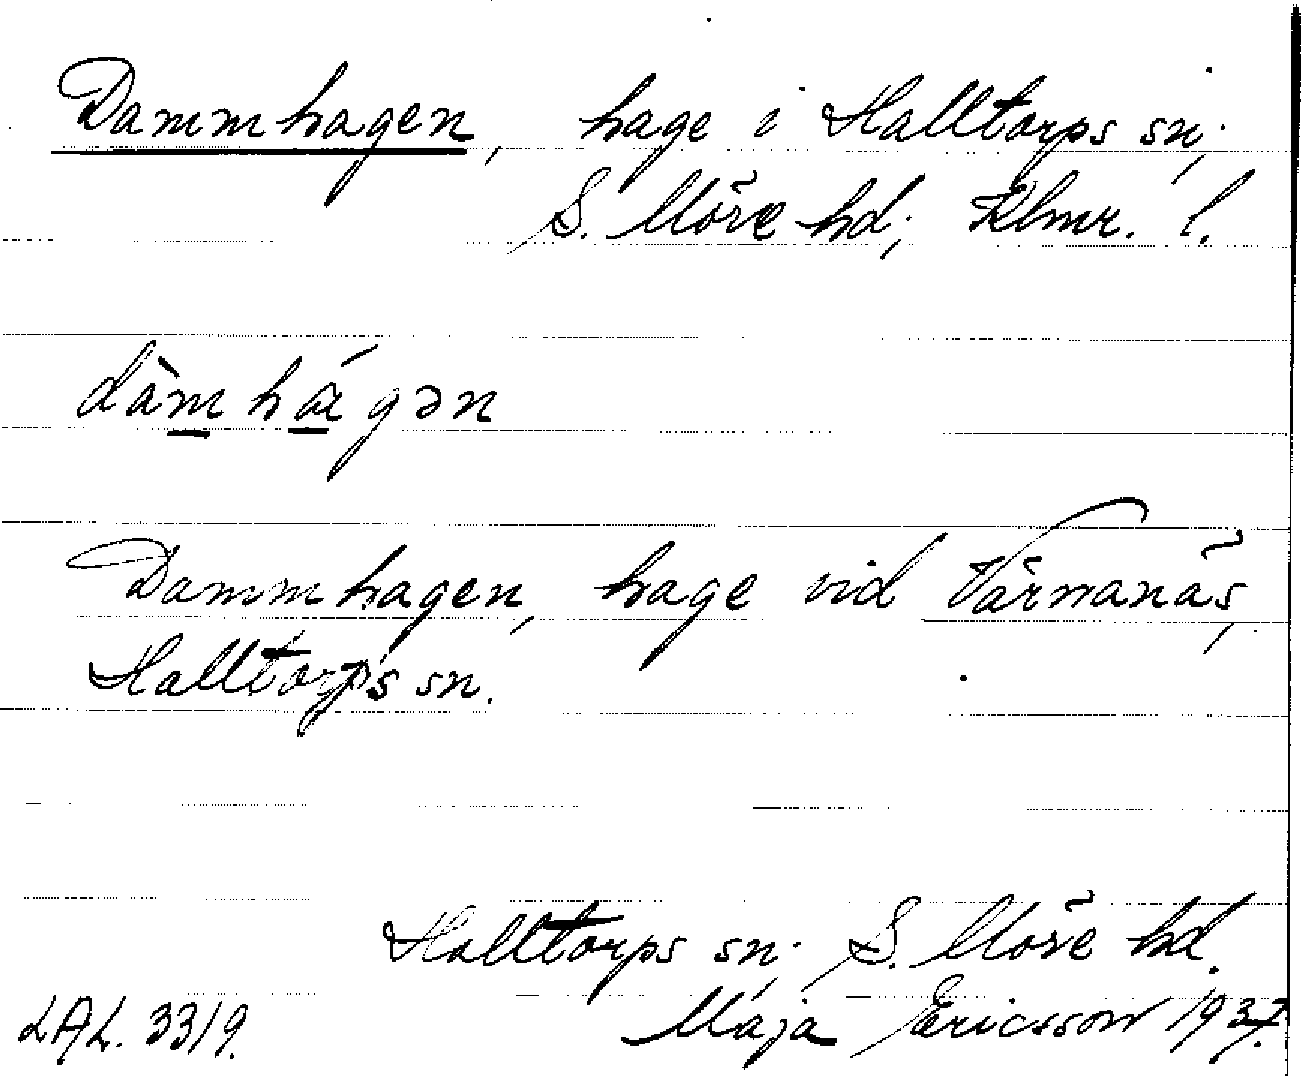 Dammhagen, hage i Halltorps sn,
S. Möre hd, Klmr. l.
dàmhágən
Dammhagen, hage vid Värnanäs,
Halltorps sn.
Halltorps sn, S. Möre hd.
LAL. 3319. Maja Ericsson 1937.